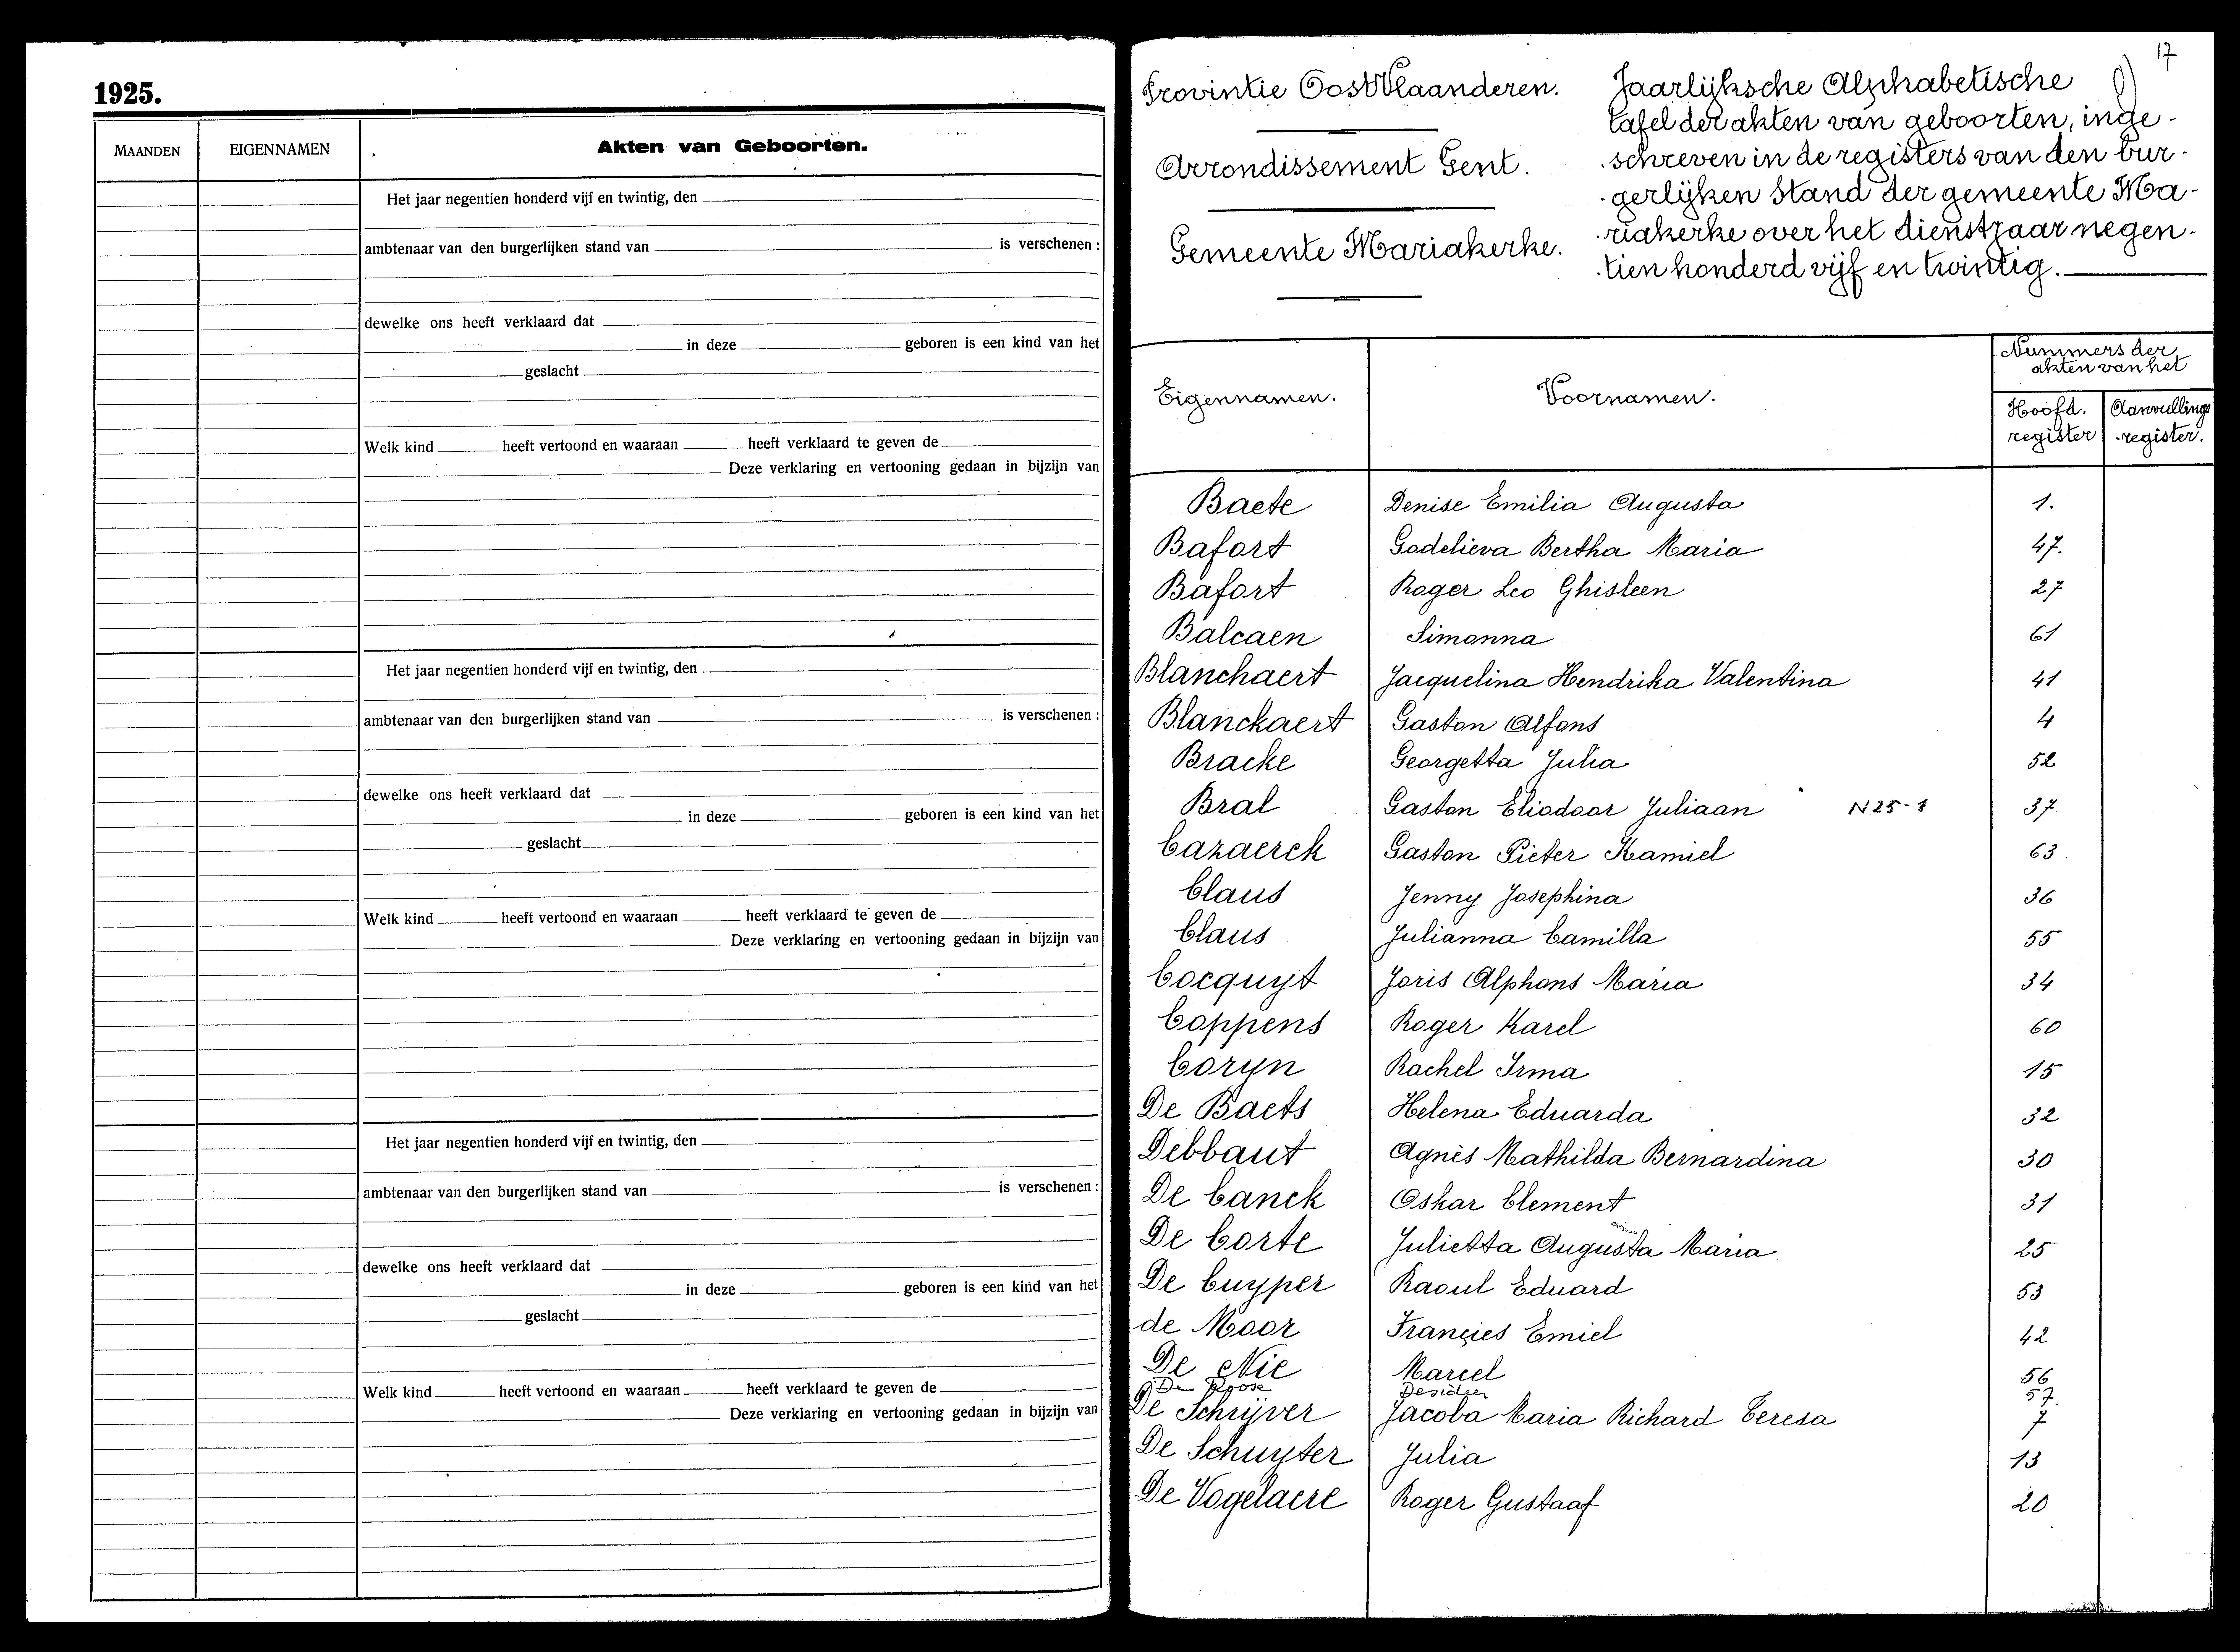 1925.
MAANDEN EIGENNAMEN Akten van Geboorten.
Het jaar negentien honderd vijf en twintig, den
ambtenaar van den burgerlijken stand van is verschenen :
dewelke ons heeft verklaard dat
in deze geboren is een kind van het
geslacht
Welk kind heeft vertoond en waaraan heeft verklaard te geven de
Deze verklaring en vertooning gedaan in bijzijn van
Het jaar negentien honderd vijf en twintig, den
ambtenaar van den burgerlijken stand van is verschenen :
dewelke ons heeft verklaard dat
in deze geboren is een kind van het
geslacht
Welk kind heeft vertoond en waaraan heeft verklaard te geven de
Deze verklaring en vertooning gedaan in bijzijn van
Het jaar negentien honderd vijf en twintig, den
ambtenaar van den burgerlijken stand van is verschenen :
dewelke ons heeft verklaard dat
in deze geboren is een kind van het
geslacht
Welk kind heeft vertoond en waaraan heeft verklaard te geven de
Deze verklaring en vertooning gedaan in bijzijn van
17
Provintie Oost Vlaanderen.
Arrondissement Gent.
Gemeente Mariakerke.
Jaarlijksche Alphabetische
tafel der akten van geboorten, inge-
schreven in de registers van den bur-
gerlijken stand der gemeente Ma-
riakerke over het dienstjaar negen-
tien honderd vijf en twintig.
Eigennamen. Voornamen. Nummers der
akten van het
Hoofd. Aanvullings
register -register.
Baete Denise Emilia Augusta 1.
Bafort Godelieva Bertha Maria 47.
Bafort Roger Leo Ghisleen 27
Balcaen Simonna 61
Blanchaert Jacquelina Hendrika Valentina 41
Blanckaert Gaston Alfons 4
Bracke Georgetta Julia 52
Bral Gaston Eliodoor Juliaan N25-1 37
Cazaerck Gaston Pieter Kamiel 63.
Claus Jenny Josephina 36
Claus Julianna Camilla 55
Cocquyt Joris Alphons Maria 34
Coppens Roger Karel 60
Coryn Rachel Irma 15
De Baets Helena Eduarda 32
Debbaut Agnès Mathilda Bernardina 30
De Canck Oskar Clement 31
De Corte Julietta Augusta Maria 25
De Cuyper Raoul Eduard 53
de Moor Françies Emiel 42
De Nie Marcel 56
De Roose Desideer 57.
De Schrijver Jacoba Maria Richard Teresa 7
De Schuyter Julia 13
De Vogelaere Roger Gustaaf 20